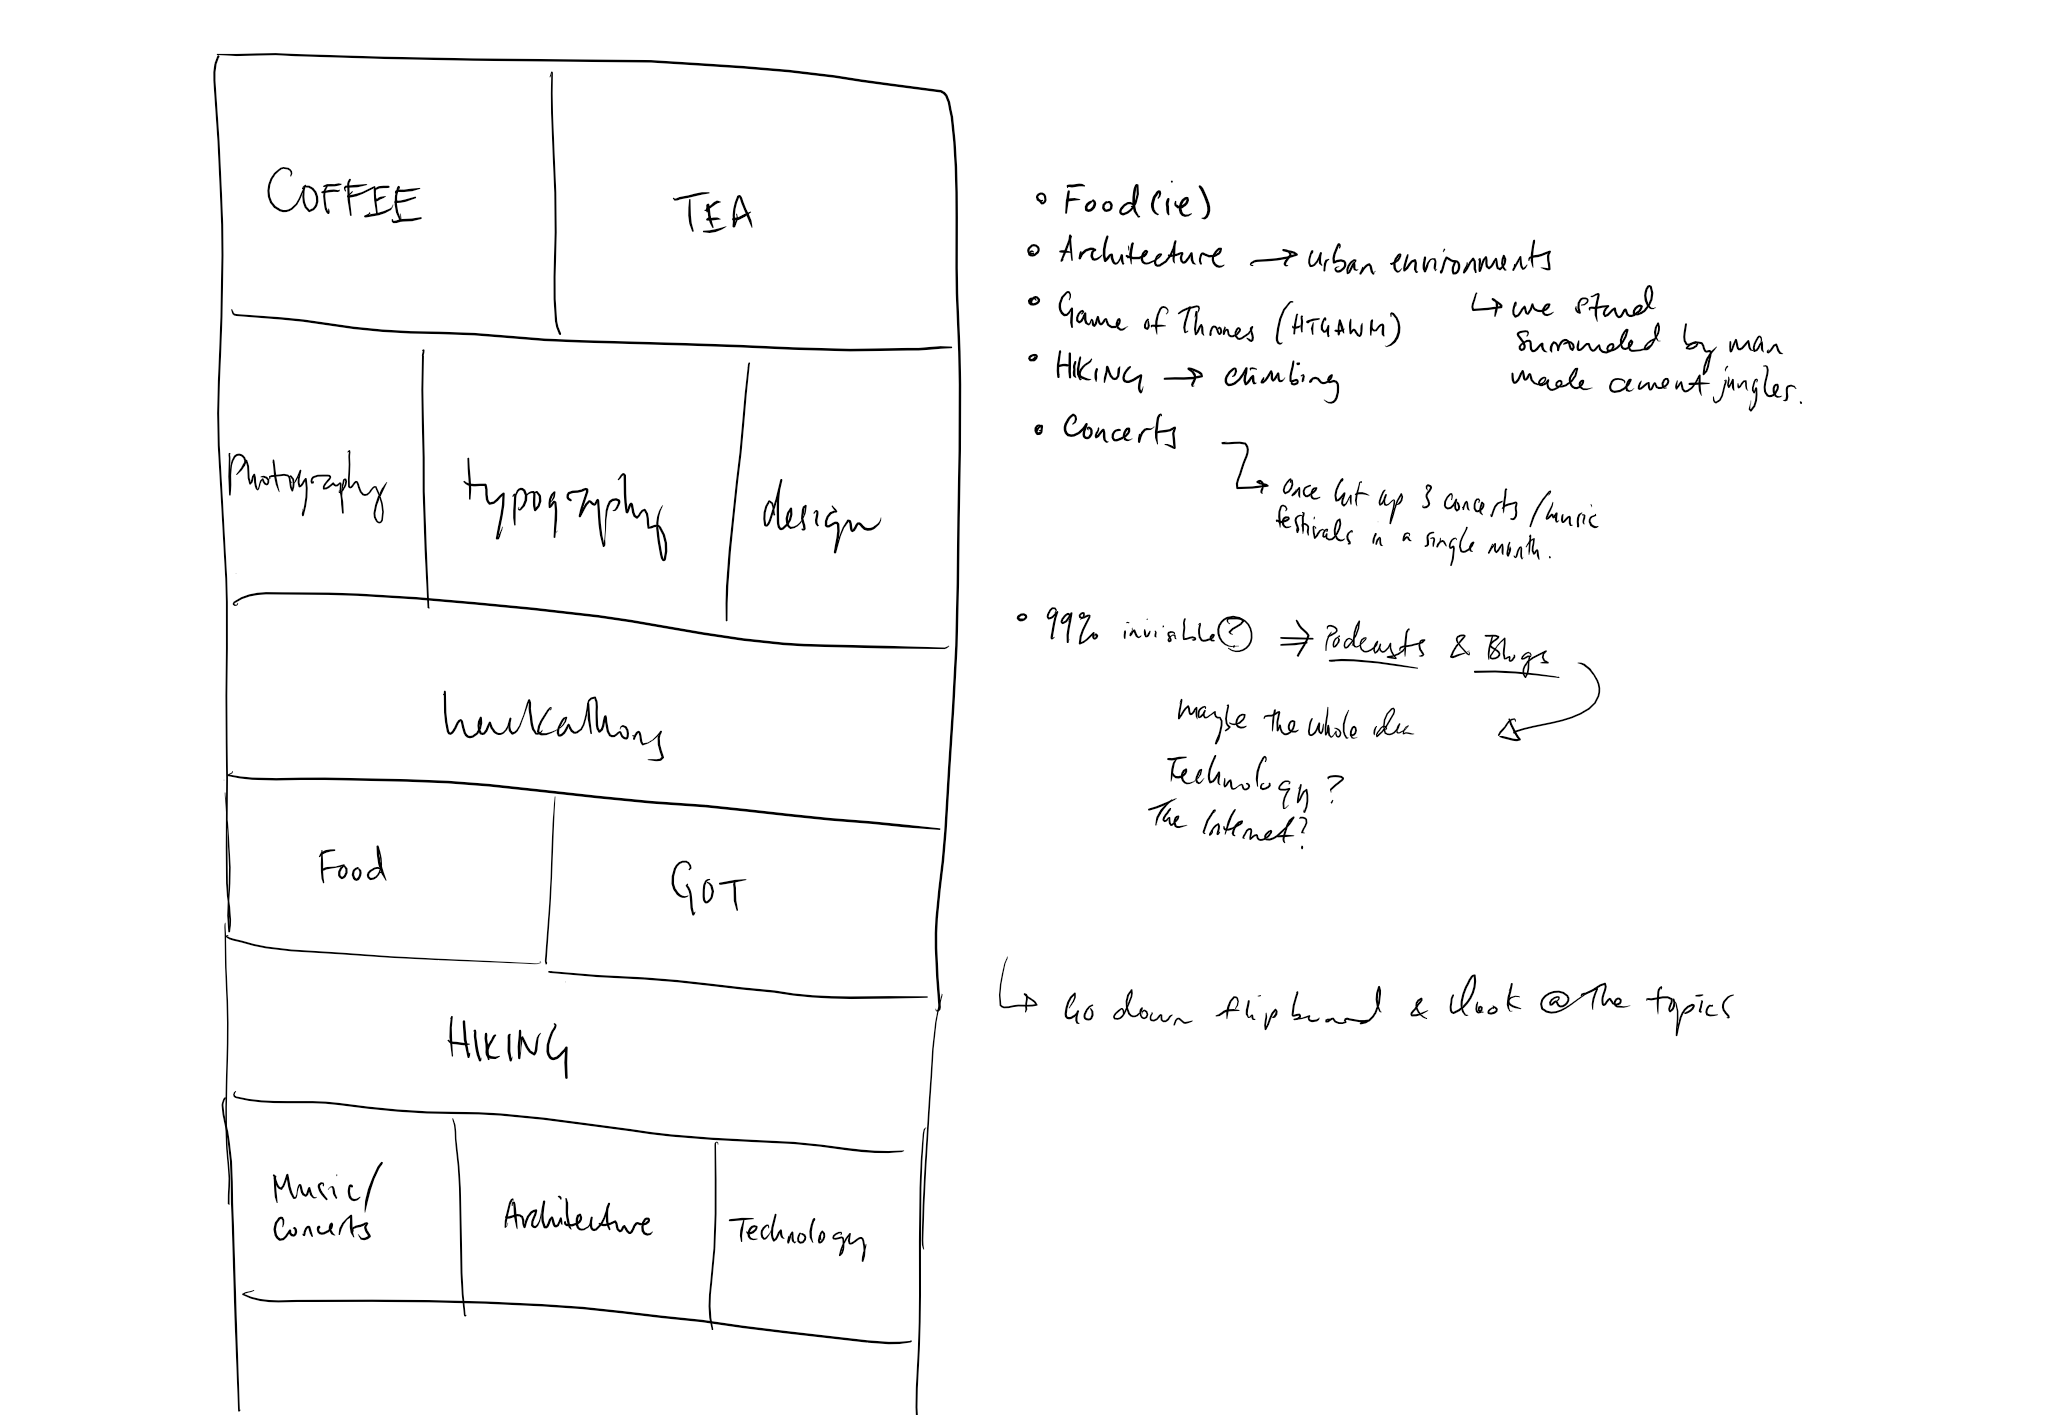 COFFEE
TEA
Photography
typography
design
hackathons
Food
GOT
HIKING
Music/
Concerts
Architecture
Technology
• Food(ie)
• Architecture → urban environments
↳ we stand
surrounded by man
made cement jungles.
• Game of Thrones (HTGAWM)
• HIKING → climbing
• Concerts
↳ once hit up 3 concerts/music
festivals in a single month.
• 99% invisible? ⇒ Podcasts & Blogs
maybe the whole idea
Technology?
The Internet?
↳ Go down flipboard & look @ the topics